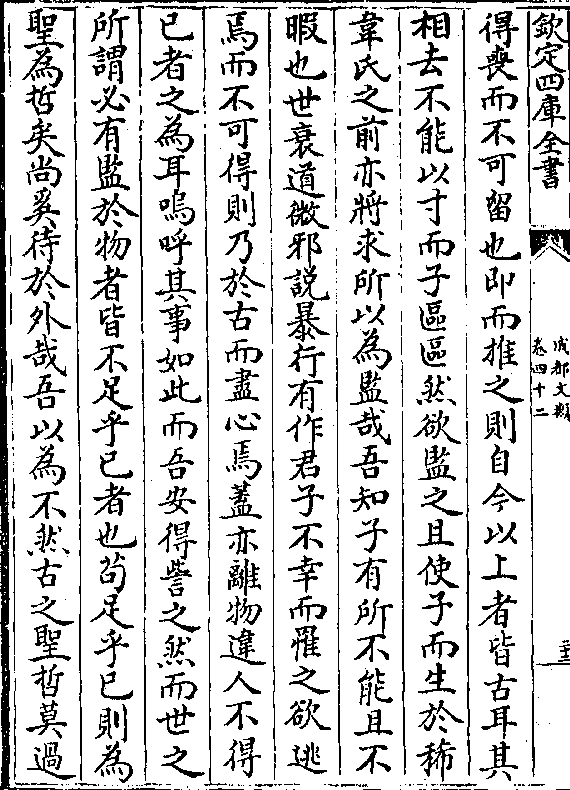 欽定四庫全書
成都文類
卷四十二
三三
得喪而不可留也即而推之則自今以上者皆古耳其
相去不能以寸而子區區然欲監之且使子而生於狶
韋氏之前亦將求所以為監哉吾知子有所不能且不
暇也世衰道微邪説暴行有作君子不幸而罹之欲逃
焉而不可得則乃於古而盡心焉蓋亦離物違人不得
已者之為耳嗚呼其事如此而吾安得訾之然而世之
所謂必有監於物者皆不足乎已者也茍足乎已則為
聖為哲矣尚奚待於外哉吾以為不然古之聖哲莫過